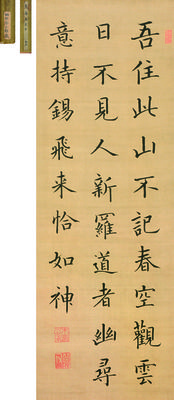 吾住此山不記春空觀雲
日不見人新羅道者幽尋
意持錫飛来恰如神